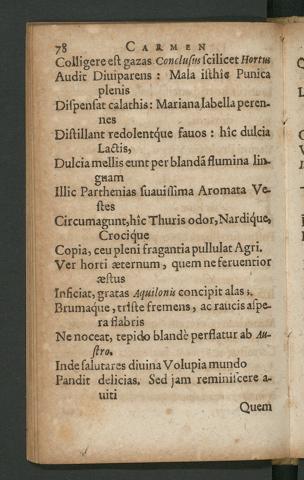 78 CARMEN
Colligere est gazas Conclusus scilicet Hortus
Audit Diuiparens: Mala isthic Punica
plenis
Dispensat calathis: Mariana labella peren-
nes
Distillant redolentq́ue fauos: hîc dulcia
Lactis,
Dulcia mellis eunt per blandã flumina lin-
guam
Illic Parthenias suauissima Aromata Ve-
stes
Circumagunt, hîc Thuris odor, Nardique,
Crocique
Copia, ceu pleni fragantia pullulat Agri.
Ver horti æternum, quem ne feruentior
æstus
Inficiat, gratas Aquilonis concipit alas;
Brumaque, triste fremens, ac raucis aspe-
ra flabris
Ne noceat, tepido blandè perflatur ab Au-
stro.
Inde salutares diuina Volupia mundo
Pandit delicias. Sed jam reminiscere a-
uiti
Quem